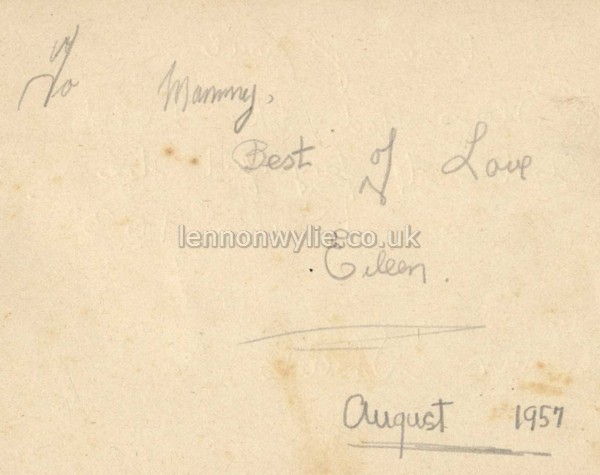 To Mammy,
Best of Love
lennonwylie.co.uk
Eileen.
August 1957